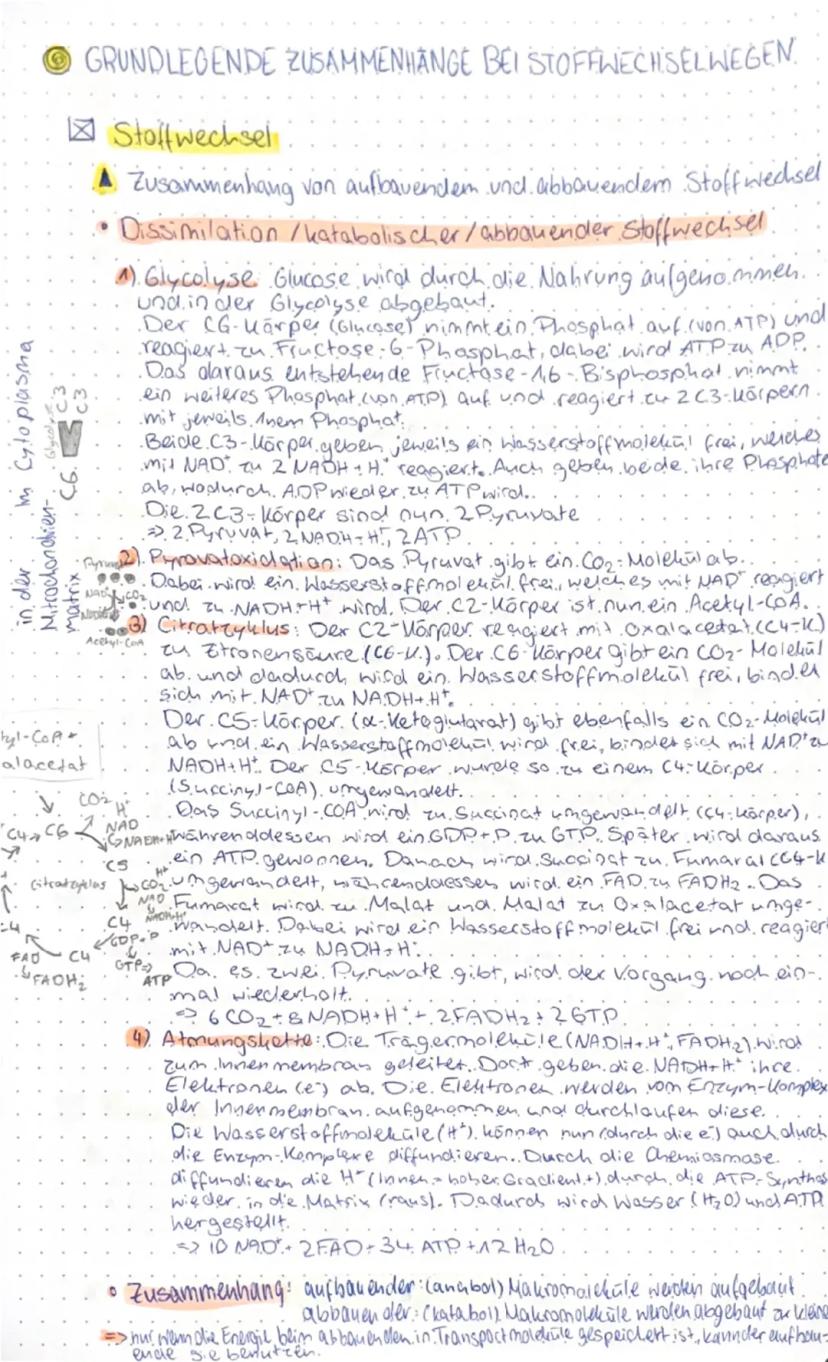 GRUNDLEGENDE ZUSAMMENHÄNGE BEI STOFFWECHSELWEGEN
Stoffwechsel
Zusammenhang von aufbauendem und abbauendem Stoffwechsel
• Dissimilation / katabolischer / abbauender Stoffwechsel
1) Glycolyse: Glucose wird durch die Nahrung aufgenommen
und in der Glycolyse abgebaut.
Der C6-Körper (Glucose) nimmt ein Phosphat auf (von ATP) und
reagiert zu Fructose-6-Phosphat, dabei wird ATP zu ADP.
Das daraus entstehende Fructose-1,6-Bisphosphat nimmt
ein weiteres Phosphat (von ATP) auf und reagiert zu 2 C3-Körpern
mit jeweils 1nem Phosphat.
Beide C3-Körper geben jeweils ein Wasserstoffmolekül frei, welches
mit NAD⁺ zu 2 NADH+H⁺ reagiert. Auch geben beide ihre Phosphate
ab, wodurch ADP wieder zu ATP wird.
Die 2 C3-Körper sind nun 2 Pyruvate
=> 2 Pyruvat, 2 NADH+H⁺, 2 ATP
im Cytoplasma
Glycolyse
C6 C3 C3
2) Pyruvatoxidation: Das Pyruvat gibt ein CO₂-Molekül ab.
Dabei wird ein Wasserstoffmolekül frei, welches mit NAD⁺ reagiert
und zu NADH+H⁺ wird. Der C2-Körper ist nun ein Acetyl-CoA.
in der
Mitochondrien-
matrix
Pyruvat
NAD CO₂
Acetyl-CoA
3) Citratzyklus: Der C2-Körper reagiert mit Oxalacetat (C4-K)
zu Zitronensäure (C6-K.). Der C6-Körper gibt ein CO₂-Molekül
ab und dadurch wird ein Wasserstoffmolekül frei, bindet
sich mit NAD⁺ zu NADH+H⁺.
Der C5-Körper (α-Ketoglutarat) gibt ebenfalls ein CO₂-Molekül
ab und ein Wasserstoffmolekül wird frei, bindet sich mit NAD⁺ zu
NADH+H⁺. Der C5-Körper wurde so zu einem C4-Körper
(Succinyl-CoA) umgewandelt.
Das Succinyl-COA wird zu Succinat umgewandelt (C4-Körper),
währenddessen wird ein GDP+P zu GTP. Später wird daraus
ein ATP gewonnen. Danach wird Succinat zu Fumarat (C4-K
umgewandelt, währenddessen wird ein FAD zu FADH₂. Das
Fumarat wird zu Malat und Malat zu Oxalacetat umge-
wandelt. Dabei wird ein Wasserstoffmolekül frei und reagiert
mit NAD⁺ zu NADH+H⁺.
Da es zwei Pyruvate gibt, wird der Vorgang noch ein-
mal wiederholt.
=> 6 CO₂ + 8 NADH+H⁺ + 2 FADH₂ + 2 GTP
tyl-CoA +
alacetat
CO₂ H⁺
C4 → C6 NAD
NADH+H⁺
C5 H⁺
Citratzyklus CO₂
NAD
NADH+H⁺
C4
GDP+P
C4
FAD
GTP =>
FADH₂ ATP
4) Atmungskette: Die Trägermoleküle (NADH+H⁺, FADH₂) wird
zum Innenmembran geleitet. Dort geben die NADH+H⁺ ihre
Elektronen (e⁻) ab. Die Elektronen werden vom Enzym-Komplex
der Innenmembran aufgenommen und durchlaufen diese.
Die Wasserstoffmoleküle (H⁺) können nun (durch die e⁻) auch durch
die Enzym-Komplexe diffundieren. Durch die Chemiosmose
diffundieren die H⁺ (Innen = hoher Gradient +) durch die ATP-Synthas
wieder in die Matrix (raus). Dadurch wird Wasser (H₂O) und ATP
hergestellt.
=> 10 NAD⁺ + 2 FAD + 34 ATP + 12 H₂O
• Zusammenhang: aufbauender: (anabol) Makromoleküle werden aufgebaut
abbauender: (katabol) Makromoleküle werden abgebaut zu kleine
=> nur wenn die Energie beim abbauenden in Transportmoleküle gespeichert ist, kann der aufbau-
ende sie benutzen.